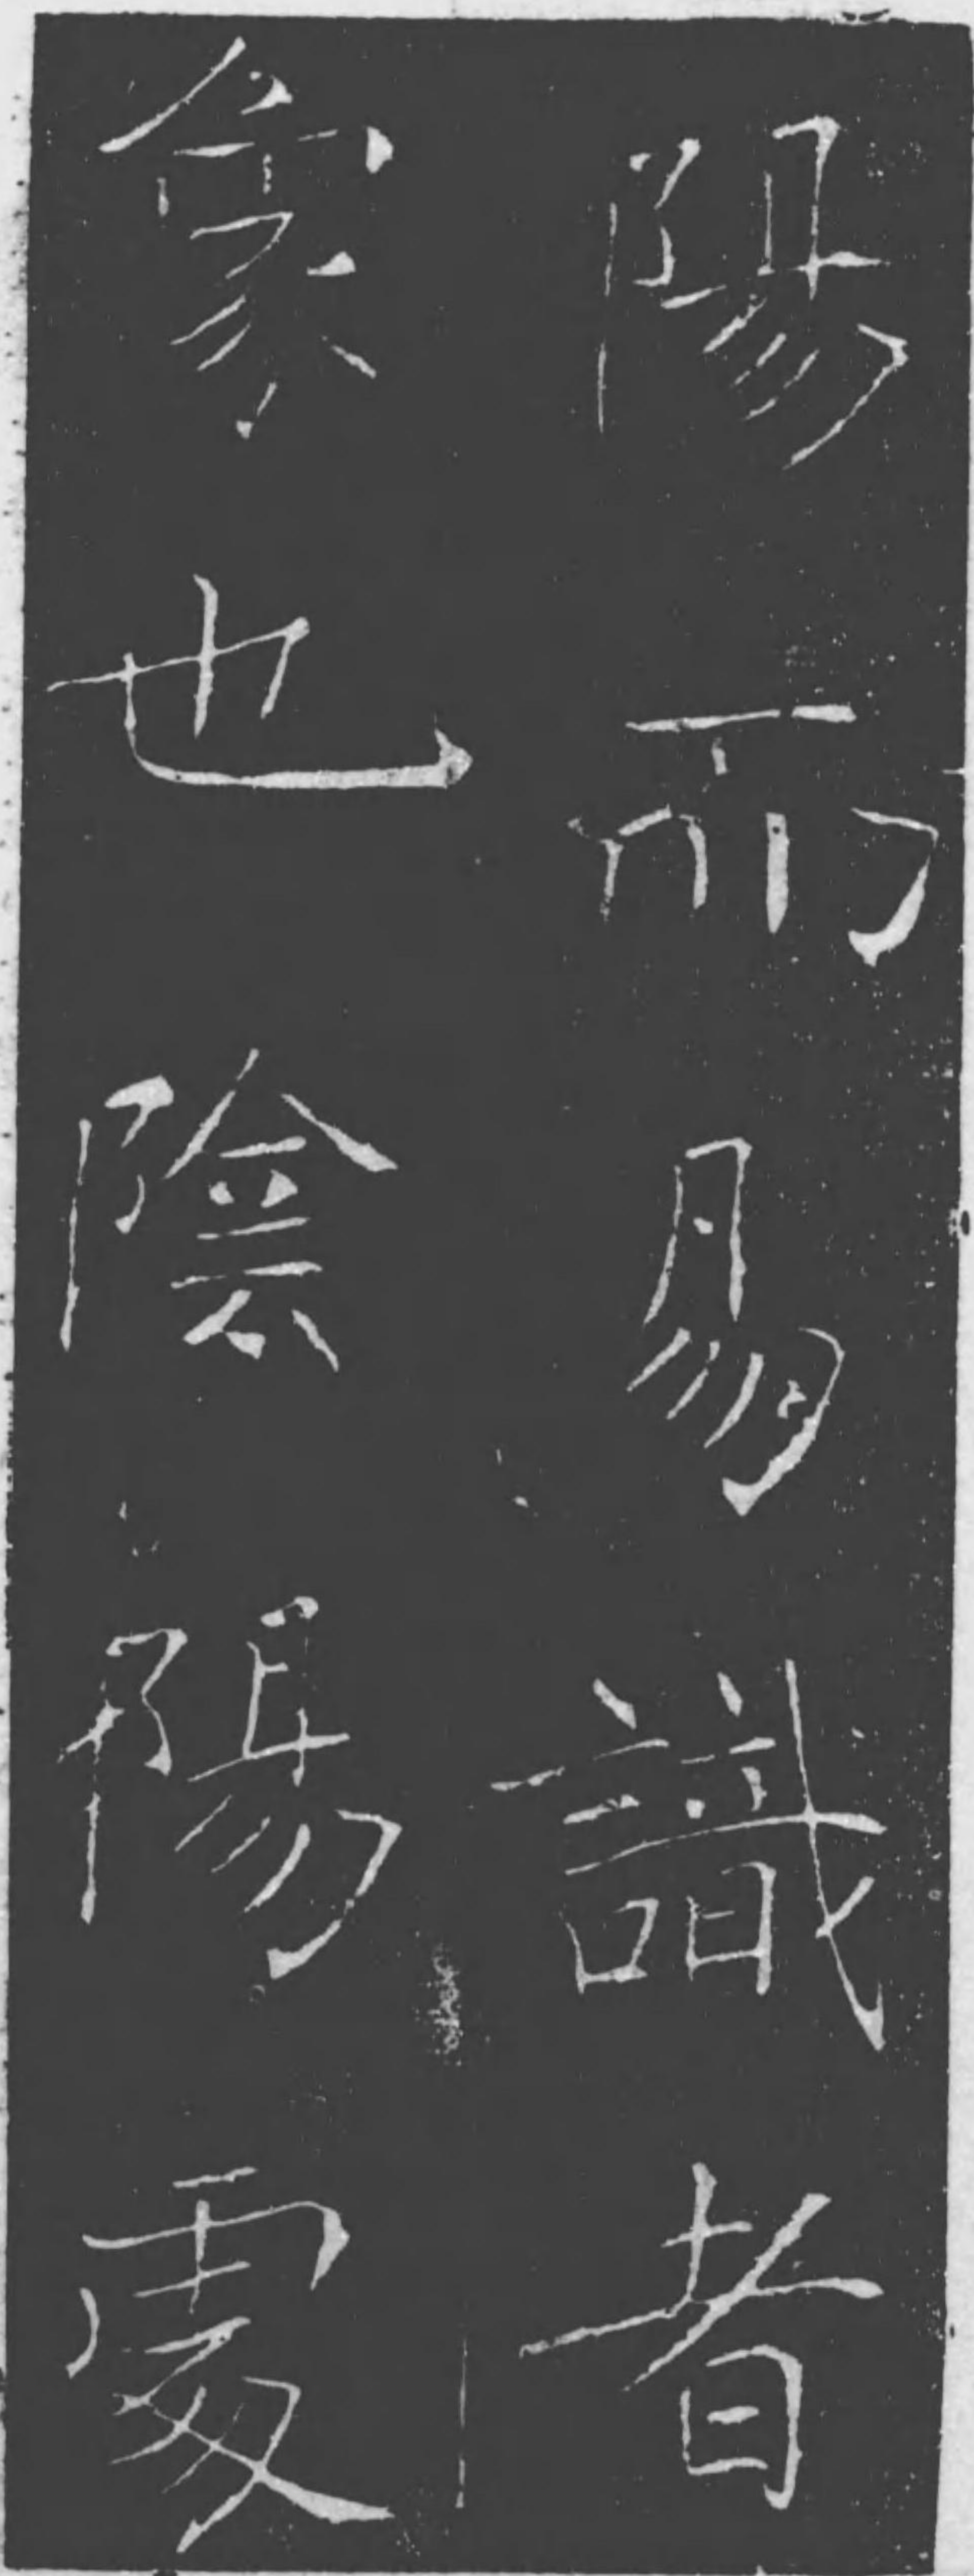 陽而易識者
象也陰陽處